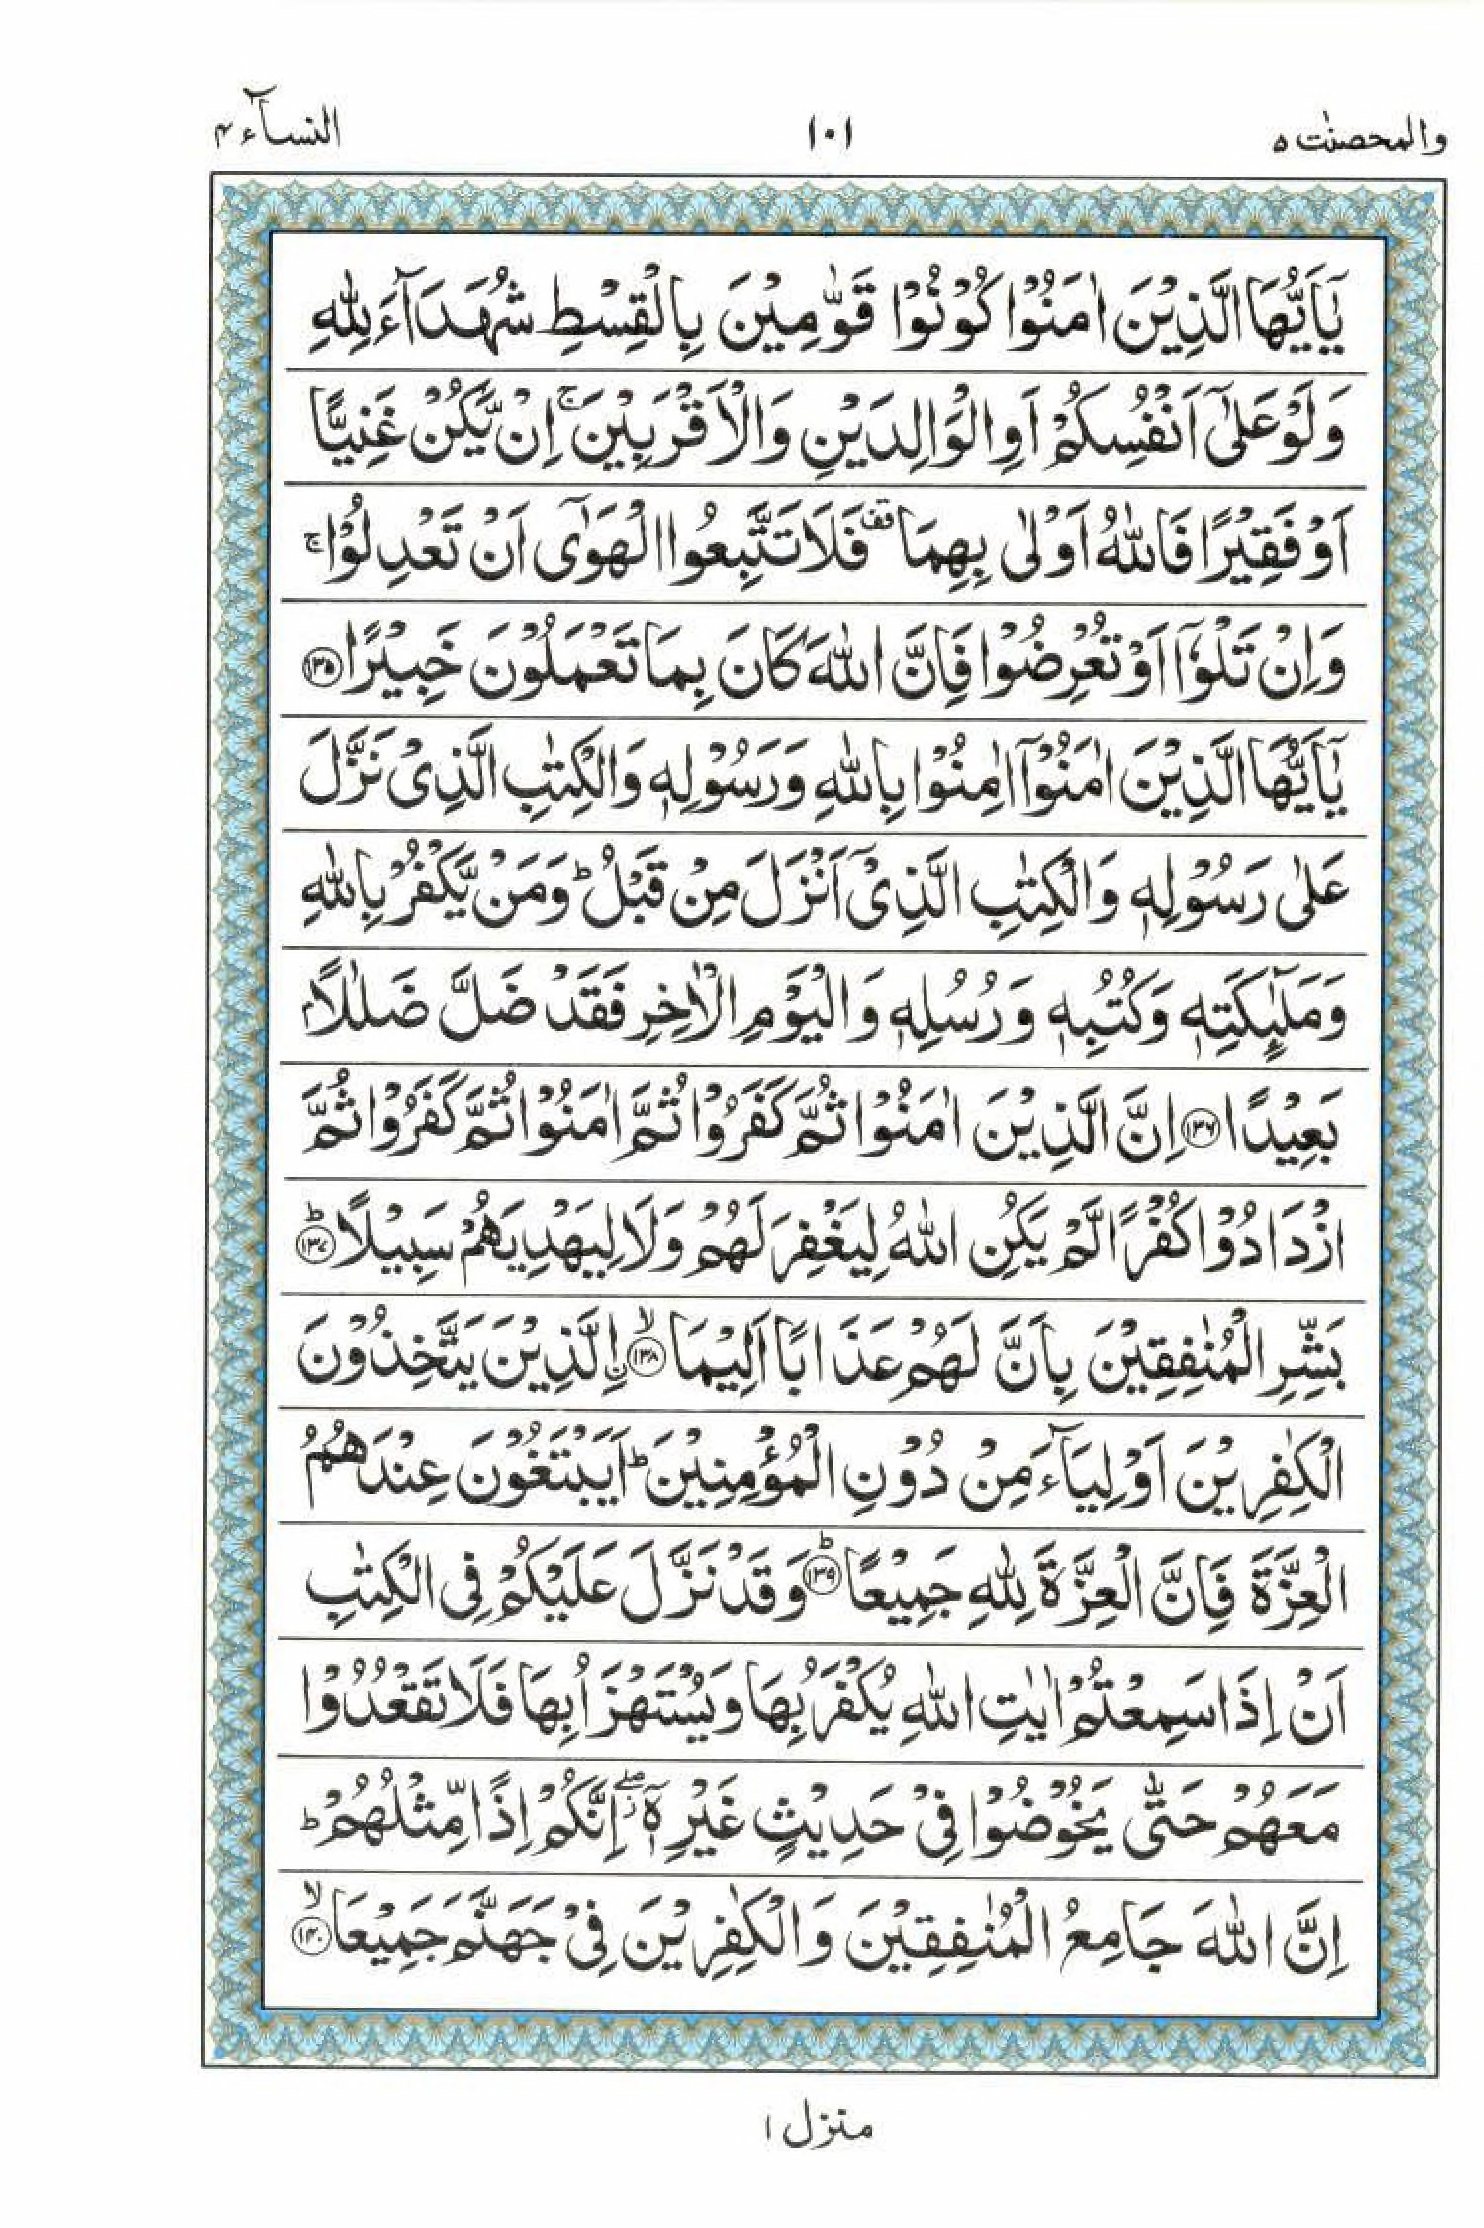 والمحصنٰت ٥ ١٠١ النسآء ٤
يٰۤاَيُّهَا الَّذِيْنَ اٰمَنُوْا كُوْنُوْا قَوّٰمِيْنَ بِالْقِسْطِ شُهَدَآءَ لِلّٰهِ
وَلَوْ عَلٰٓى اَنْفُسِكُمْ اَوِ الْوَالِدَيْنِ وَالْاَقْرَبِيْنَ ۚ اِنْ يَّكُنْ غَنِيًّا
اَوْ فَقِيْرًا فَاللّٰهُ اَوْلٰى بِهِمَا قف فَلَا تَتَّبِعُوا الْهَوٰٓى اَنْ تَعْدِلُوْا ۚ
وَاِنْ تَلْوٗٓا اَوْ تُعْرِضُوْا فَاِنَّ اللّٰهَ كَانَ بِمَا تَعْمَلُوْنَ خَبِيْرًا ﴿۱۳۵﴾
يٰۤاَيُّهَا الَّذِيْنَ اٰمَنُوْۤا اٰمِنُوْا بِاللّٰهِ وَرَسُوْلِهٖ وَالْكِتٰبِ الَّذِىْ نَزَّلَ
عَلٰى رَسُوْلِهٖ وَالْكِتٰبِ الَّذِىْۤ اَنْزَلَ مِنْ قَبْلُ ؕ وَمَنْ يَّكْفُرْ بِاللّٰهِ
وَمَلٰٓئِكَتِهٖ وَكُتُبِهٖ وَرُسُلِهٖ وَالْيَوْمِ الْاٰخِرِ فَقَدْ ضَلَّ ضَلٰلًاۢ
بَعِيْدًا ﴿۱۳۶﴾ اِنَّ الَّذِيْنَ اٰمَنُوْا ثُمَّ كَفَرُوْا ثُمَّ اٰمَنُوْا ثُمَّ كَفَرُوْا ثُمَّ
ازْدَادُوْا كُفْرًا لَّمْ يَكُنِ اللّٰهُ لِيَغْفِرَ لَهُمْ وَلَا لِيَهْدِيَهُمْ سَبِيْلًا ؕ ﴿۱۳۷﴾
بَشِّرِ الْمُنٰفِقِيْنَ بِاَنَّ لَهُمْ عَذَابًا اَلِيْمَا ۙ ﴿۱۳۸﴾ ۨالَّذِيْنَ يَتَّخِذُوْنَ
الْكٰفِرِيْنَ اَوْلِيَآءَ مِنْ دُوْنِ الْمُؤْمِنِيْنَ ؕ اَيَبْتَغُوْنَ عِنْدَهُمُ
الْعِزَّةَ فَاِنَّ الْعِزَّةَ لِلّٰهِ جَمِيْعًا ؕ ﴿۱۳۹﴾ وَقَدْ نَزَّلَ عَلَيْكُمْ فِى الْكِتٰبِ
اَنْ اِذَا سَمِعْتُمْ اٰيٰتِ اللّٰهِ يُكْفَرُ بِهَا وَيُسْتَهْزَاُ بِهَا فَلَا تَقْعُدُوْا
مَعَهُمْ حَتّٰى يَخُوْضُوْا فِىْ حَدِيْثٍ غَيْرِهٖۤ ۖ ز اِنَّكُمْ اِذًا مِّثْلُهُمْ ؕ
اِنَّ اللّٰهَ جَامِعُ الْمُنٰفِقِيْنَ وَالْكٰفِرِيْنَ فِىْ جَهَنَّمَ جَمِيْعَا ۙ ﴿۱۴۰﴾
منزل ١